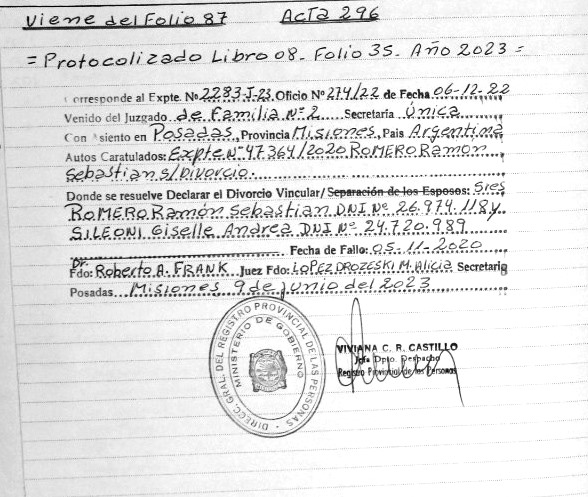 Viene del Folio 87 Acta 296
= Protocolizado Libro 08. Folio 35. Año 2023 =
orresponde al Expte. No. 2283-J-23. Oficio Nº 274/22 de Fecha 06-12-22
Venido del Juzgado de Familia Nº 2 Secretaria Única
Con Asiento en Posadas, Provincia Misiones, Pais Argentina
Autos Caratulados: Expte Nº 47364/2020 ROMERO Ramon
Sebastian S/Divorcio.
Donde se resuelve Declarar el Divorcio Vincular/ Separación de los Esposos: Sres
ROMERO Ramón Sebastian DNI Nº 26.974.118 y
SILEONI Giselle Andrea DNI Nº 24.720.989
Fecha de Fallo: 05-11-2020
Dr.
Fdo: Roberto A. FRANK Juez Fdo: LOPEZ DROZESKI M. Alicia Secretario
Posadas Misiones 9 de junio del 2023
DIRECC. GRAL. DEL REGISTRO PROVINCIAL DE LAS PERSONAS
MINISTERIO DE GOBIERNO
VIVIANA C. R. CASTILLO
Jefa Dpto. Despacho
Registro Provincial de las Personas